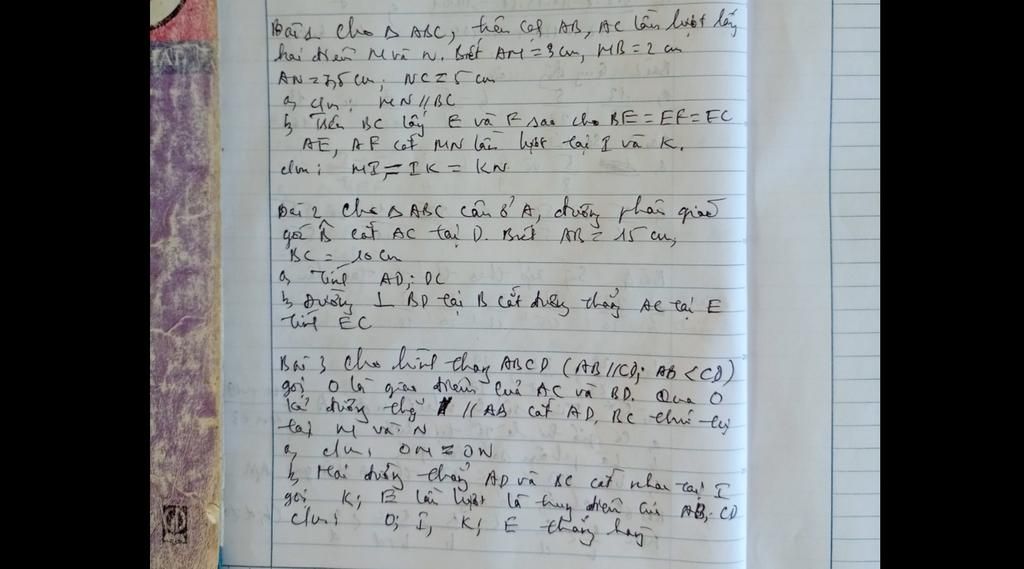 Bài 1 Cho Δ ABC, trên cạnh AB, AC lần lượt lấy
hai điểm M và N. Biết AM = 3 cm, MB = 2 cm
AN = 7,5 cm; NC = 5 cm
a, c/m: MN // BC
b, Trên BC lấy E và F sao cho BE = EF = FC
AE, AF cắt MN lần lượt tại I và K.
c/m: MI = IK = KN
Bài 2 Cho Δ ABC cân ở A, đường phân giác
góc B̂ cắt AC tại D. Biết AB = 15 cm,
BC = 10 cm
a, Tính AD; DC
b, Đường ⊥ BD tại B cắt đường thẳng AC tại E
Tính EC
Bài 3 Cho hình thang ABCD (AB // CD; AB < CD)
gọi O là giao điểm của AC và BD. Qua O
kẻ đường thg // AB cắt AD, BC thứ tự
tại M và N
a, c/m: OM = ON
b, Hai đường thẳng AD và BC cắt nhau tại I
gọi K; E lần lượt là trung điểm của AB; CD
c/m: O; I, K; E thẳng hàng.